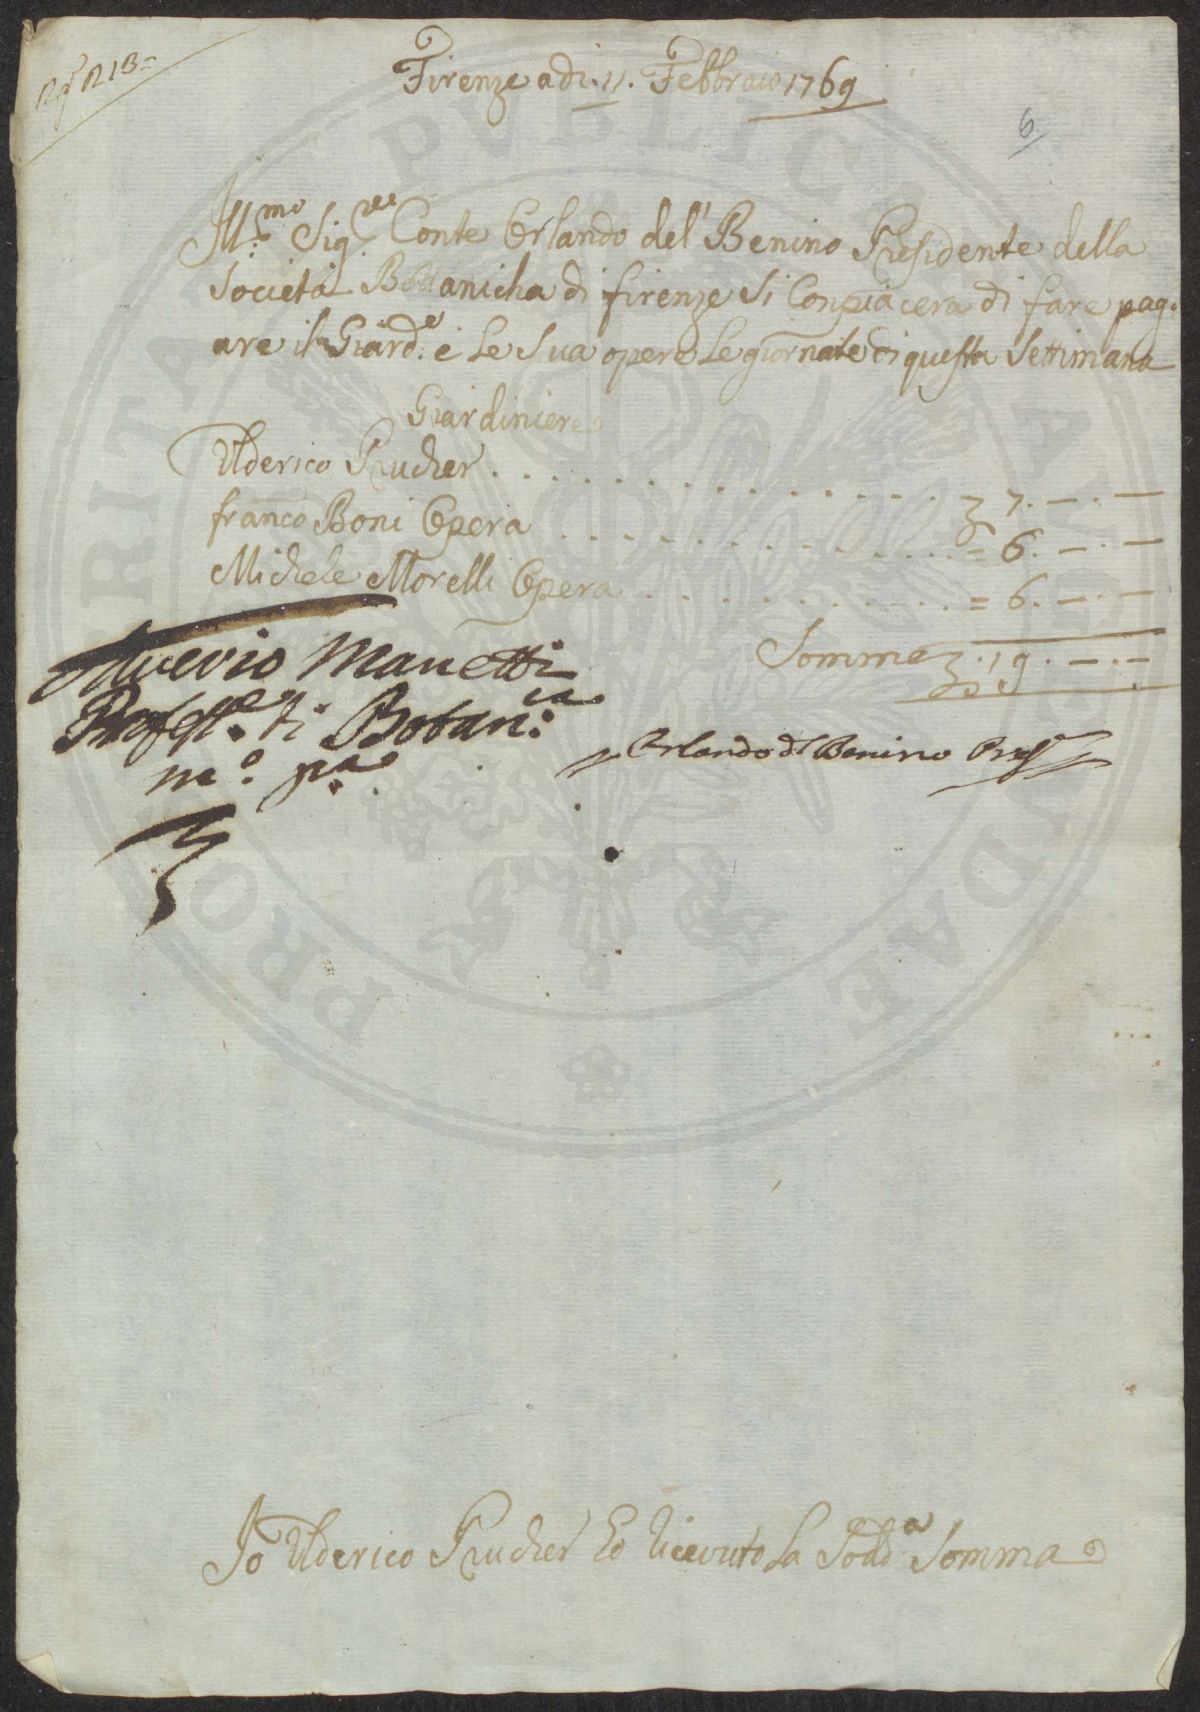 Firenze adi. 11. Febbraio 1769
6
Ill:mo Sig:re Conte Orlando del' Benino Presidente della
Società Bottanicha di firenze Si Conpiacera di fare pag-
are il Giard:e e Le Sua opere Le giornate di questa Settimana
Giardiniere
Ulderico Prucher . . . . . . . . . . . . . . . . 7. — . —
franco Boni Opera . . . . . . . . . . . . . . = 6. — . —
Michele Morelli Opera . . . . . . . . . . . . = 6. — . —
Somma . 19 . — . —
Saverio Manetti
Profess:e di Botan:ca
m:o p:a
Orlando d'l Benino Pres:
Io Ulderico Prucher Ho Ricevuto La Sodd:a Somma
PRO PVBLICAE